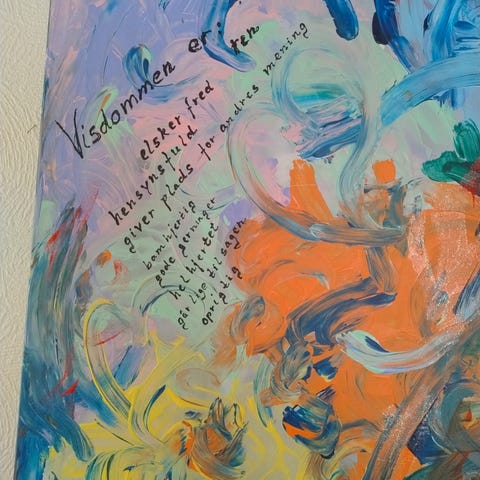 Visdommen er:
ren
elsker fred
hensynsfuld
giver plads for andres mening
bamhjertig
gode gerninger
helhjertet
går lige til sagen
oprigtig